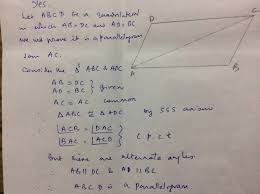 Yes.
Let ABCD be a quadrilateral
in which AB = DC and AD = BC
we prove it is a parallelogram
Join AC.
Consider the Δˢ ABC & ADC
AB = DC
AD = BC } given
AC = AC common
∴ ΔABC ≅ ΔADC by SSS axiom
∴ ∠ACB = ∠DAC
∠BAC = ∠ACD } C.p.c.t
But these are alternate angles.
∴ AB ∥ DC & AD ∥ BC
∴ ABCD is a parallelogram.
D
C
A
B